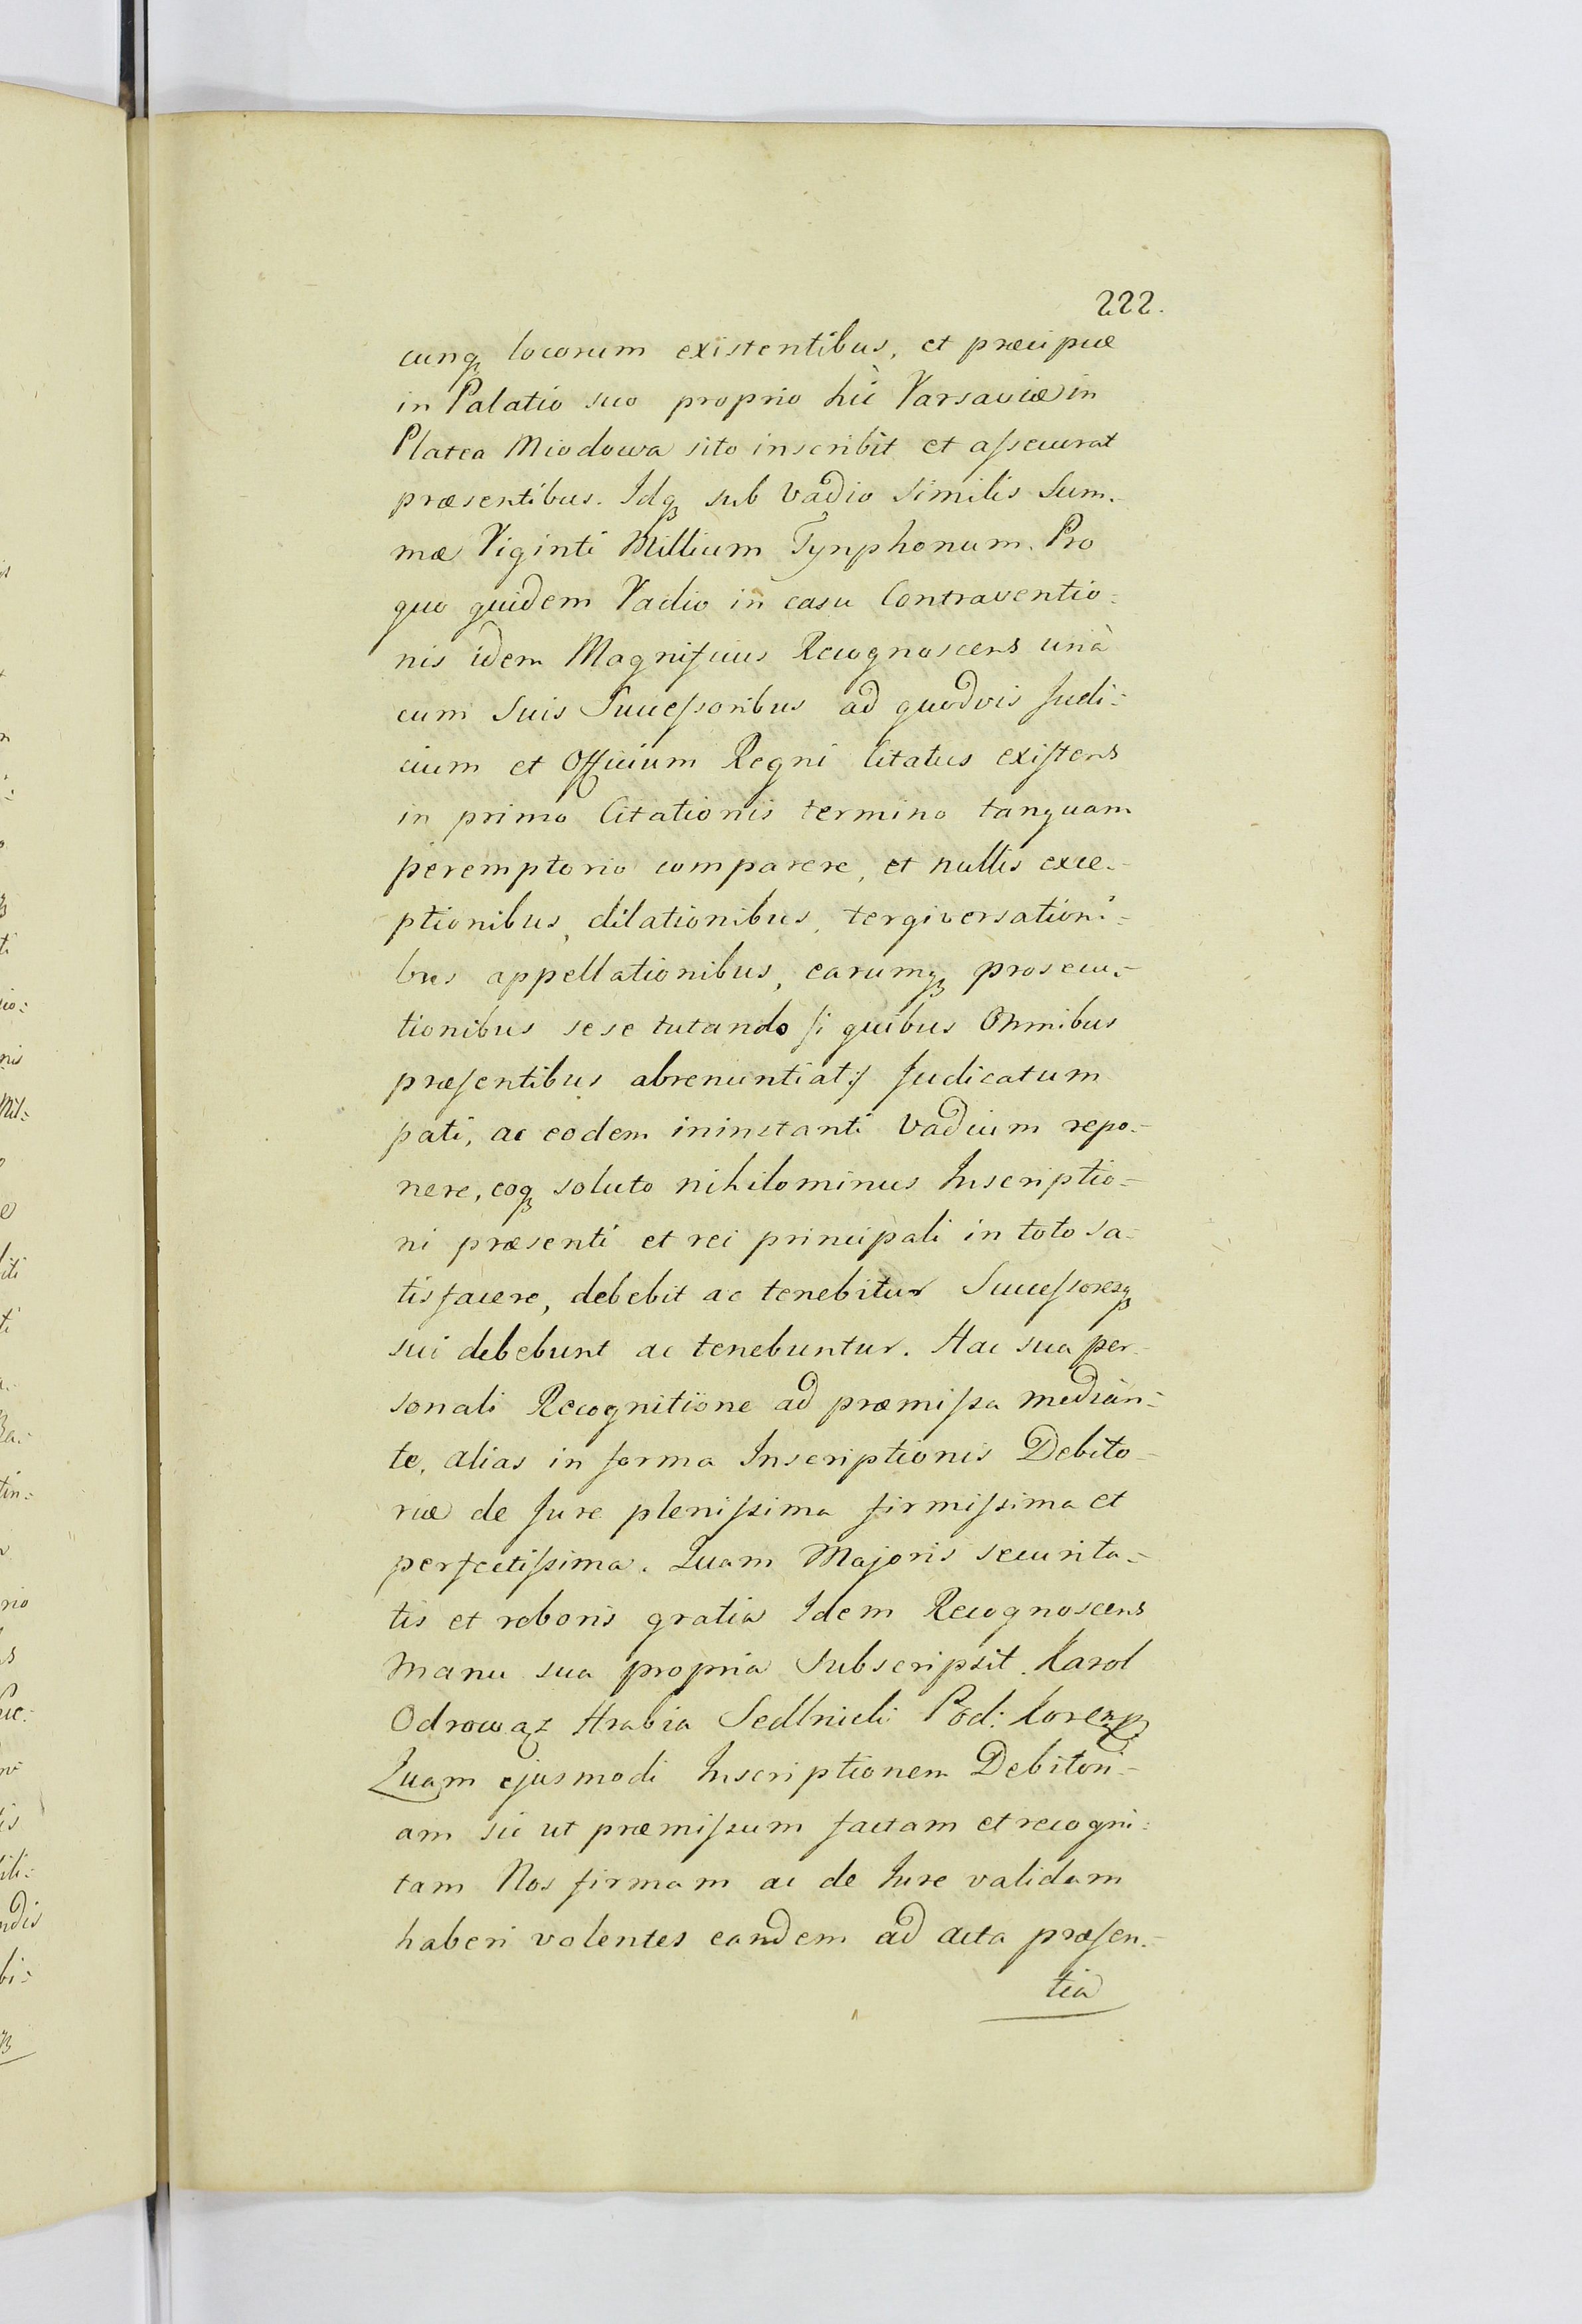 222.
cunqꝫ locorum existentibus, et præcipuæ
in Palatio suo proprio hic Varsaviæ in
Platea Miodowa sito inscribit et aſsecurat
præsentibus. Idqꝫ sub Vadio similis Sum-
mæ Viginti Millium Tynphonum. Pro
quo quidem Vadio in casu Contraventio:
nis idem Magnificus Recognoscens unà
cum Suis Succeſsoribus ad quodvis Judi:
cium et Officium Regni Citatus exiſtens
in primo Citationis termino tanquam
peremptorio comparere, et nullis exce-
ptionibus, dilationibus, tergiversationi:
bus appellationibus, earumqꝫ prosecu-
tionibus sese tutando ſi quibus Omnibus
præſentibus abrenuntiat ſ Judicatum
pati, ac eodem ininstanti Vadium repo-
nere, eoqꝫ soluto nihilominus Inscriptio-
ni præsenti et rei principali in toto sa-
tisfacere, debebit ac tenebitur Succeſsoresqꝫ
sui debebunt ac tenebuntur. Hac sua per-
sonali Recognitione ad præmiſsa median-
te, alias in forma Inscriptionis Debito-
riæ de Jure pleniſsima firmiſsima et
perfectiſsima. Quam Majoris securita-
tis et roboris gratia Idem Recognoscens
Manu sua propria Subscripsit. Karol
Odrowąz Hrabia Sedlnicki Pod: Korenꝫ
Quam ejusmodi Inscriptionem Debitori-
am sic ut præmiſsum factam et recogni:
tam Nos firmam ac de Jure validam
haberi volentes eandem ad acta præſen-
tia